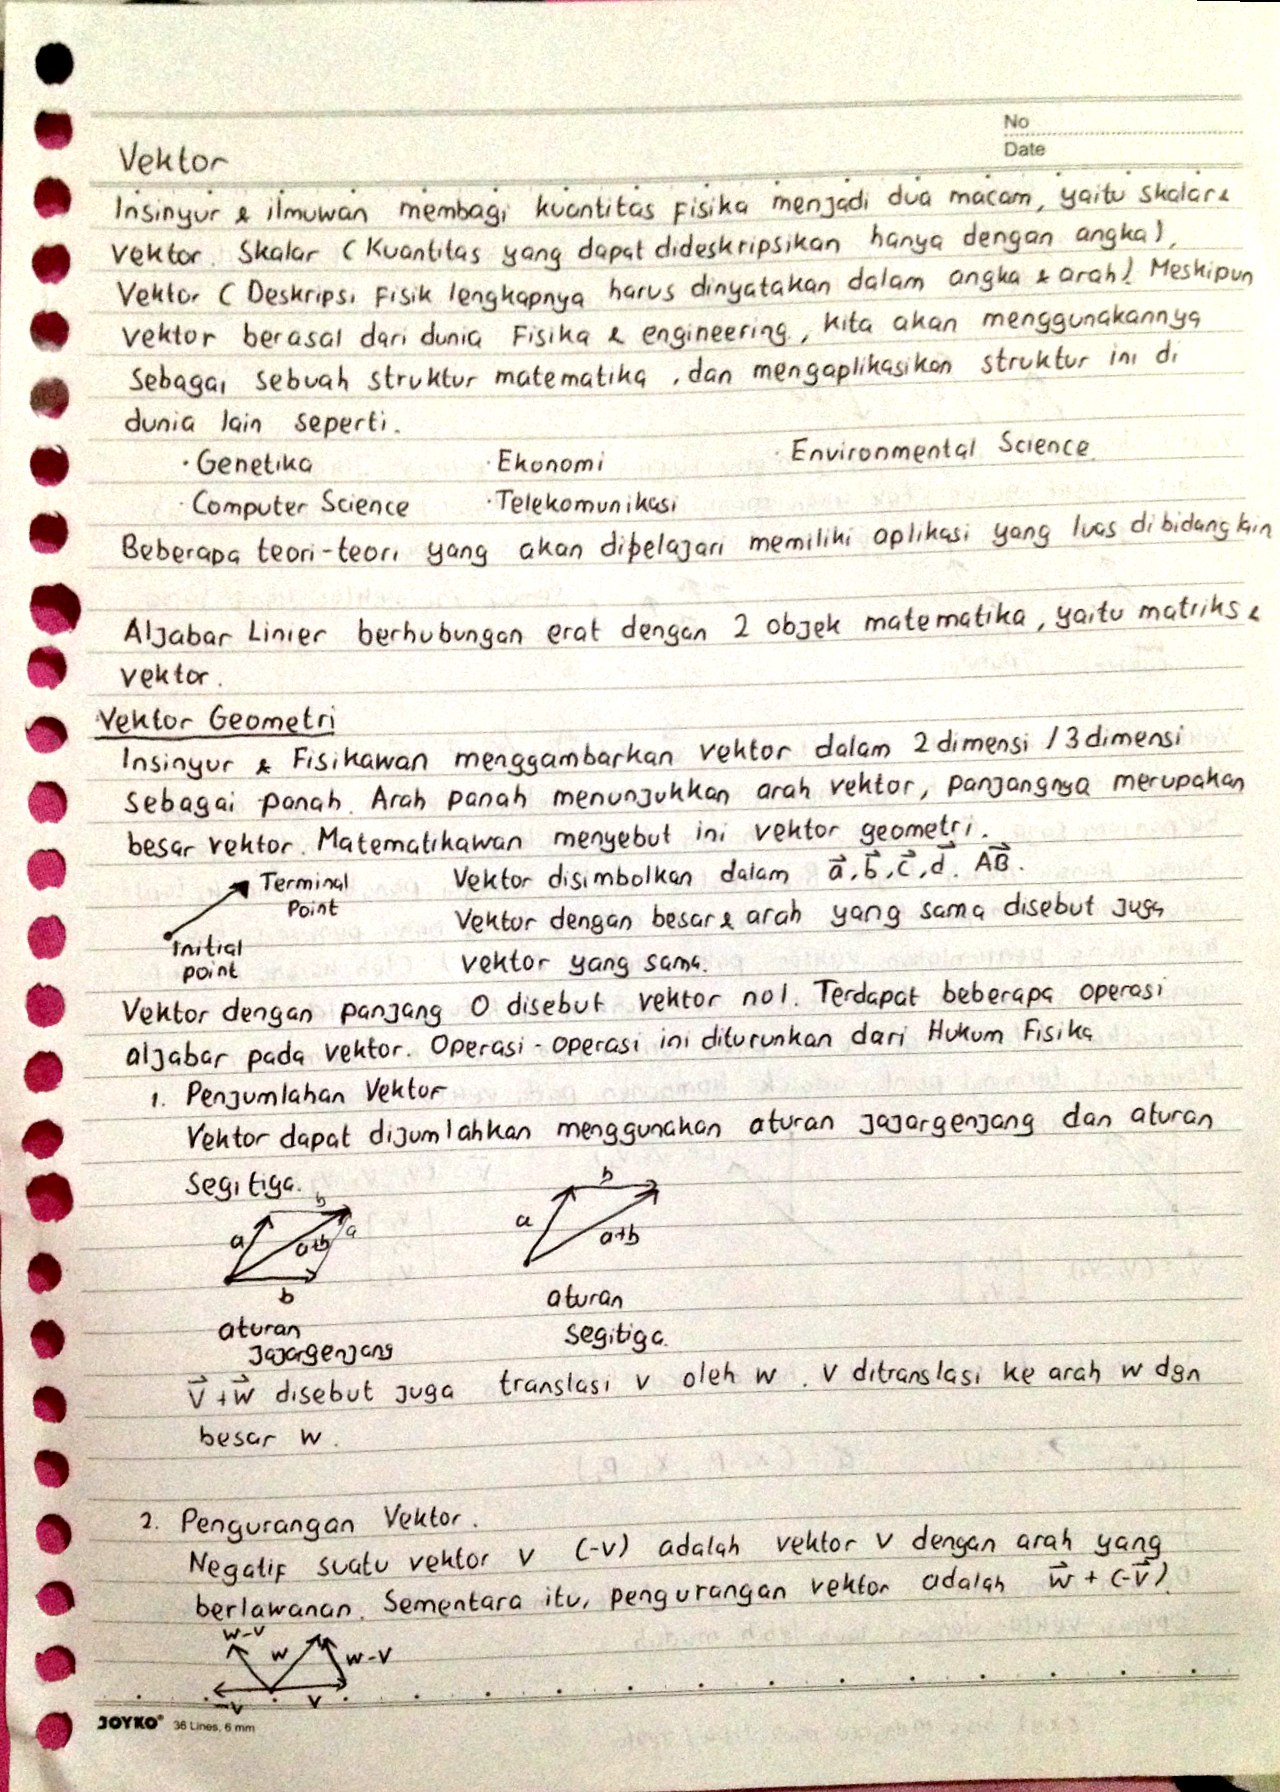 No
Date
Vektor
Insinyur & ilmuwan membagi kuantitas fisika menjadi dua macam, yaitu skalar &
vektor. Skalar (Kuantitas yang dapat dideskripsikan hanya dengan angka),
Vektor (Deskripsi Fisik lengkapnya harus dinyatakan dalam angka & arah). Meskipun
vektor berasal dari dunia Fisika & engineering, kita akan menggunakannya
sebagai sebuah struktur matematika, dan mengaplikasikan struktur ini di
dunia lain seperti.
· Genetika · Ekonomi · Environmental Science.
· Computer Science · Telekomunikasi
Beberapa teori-teori yang akan dipelajari memiliki aplikasi yang luas dibidang lain
Aljabar Linier berhubungan erat dengan 2 objek matematika, yaitu matriks &
vektor.
Vektor Geometri
Insinyur & Fisikawan menggambarkan vektor dalam 2 dimensi / 3 dimensi
sebagai panah. Arah panah menunjukkan arah vektor, panjangnya merupakan
besar vektor. Matematikawan menyebut ini vektor geometri.
Terminal Point
Initial point
Vektor disimbolkan dalam a⃗, b⃗, c⃗, d⃗. AB⃗.
Vektor dengan besar & arah yang sama disebut juga
vektor yang sama.
Vektor dengan panjang 0 disebut vektor nol. Terdapat beberapa operasi
aljabar pada vektor. Operasi-operasi ini diturunkan dari Hukum Fisika
1. Penjumlahan Vektor
Vektor dapat dijumlahkan menggunakan aturan jajargenjang dan aturan
segitiga.
b
a a+b a
b
aturan
jajargenjang
b
a a+b
aturan
segitiga.
v⃗ + w⃗ disebut juga translasi v oleh w. v ditranslasi ke arah w dgn
besar w.
2. Pengurangan Vektor.
Negatif suatu vektor v (-v) adalah vektor v dengan arah yang
berlawanan. Sementara itu, pengurangan vektor adalah w⃗ + (-v⃗).
w-v w w-v
-v v
JOYKO® 36 Lines, 6 mm